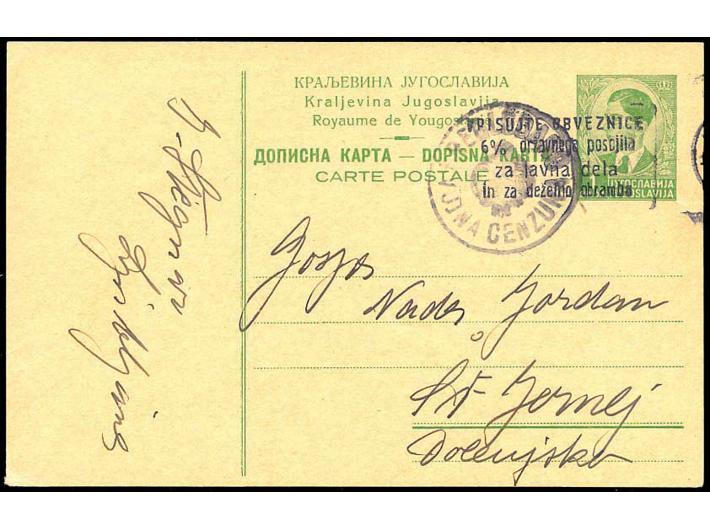 КРАЉЕВИНА ЈУГОСЛАВИЈА
Kraljevina Jugoslavija
Royaume de Yougoslavie
ДОПИСНА КАРТА — DOPISNA KARTA
CARTE POSTALE
VPISUJTE OBVEZNICE
6% državnega posojila
za javna dela
in za deželno obrambo
ЈУГОСЛАВИЈА
JUGOSLAVIJA
VOJNA CENZURA
Nada Jordan
Št Jernej
Dolenjsko
Ljubljana